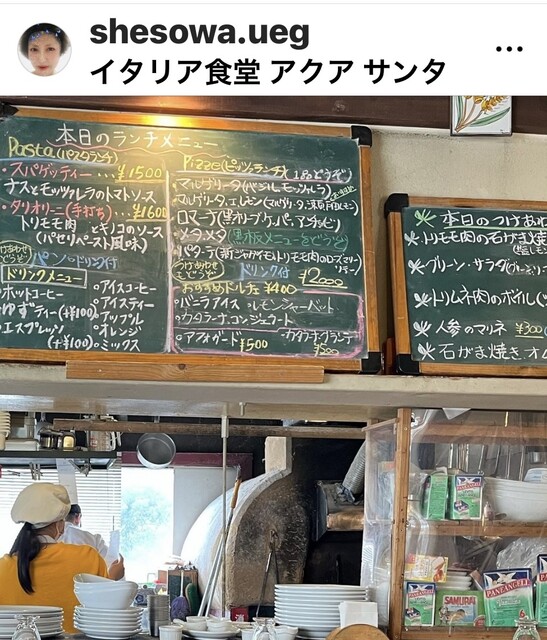 shesowa.ueg
イタリア食堂 アクア サンタ
本日のランチメニュー
Pasta (パスタランチ)
・スパゲッティー...¥1500
ナスとモッツァレラのトマトソース
・タリオリーニ(手打ち)...¥1600
トリモモ肉とキノコのソース
(パセリペースト風味)
パン・ドリンク付
ドリンクメニュー
ホットコーヒー
ゆずティー(+¥100)
エスプレッソ
(+¥100)
アイスコーヒー
アイスティー
アップル
オレンジ
ミックス
Pizze (ピッツァランチ)
マルゲリータ(バジル、モッツァレラ)
マルゲリータ、エ、レモン
ロマーナ(黒オリーブ、ケパー、アンチョビ)
メタメタ(黒板メニューをどうぞ)
パターテ(新ジャガイモとトリモモ肉のローズマリーソテー)
ドリンク付
¥2000
おすすめドルチェ ¥400
バニラアイス
レモンシャーベット
カタラーナ、コンジェラート
アフォガード ¥500
¥500
本日のつけあわせ
トリモモ肉の石がま焼き
グリーン・サラダ
トリムネ肉のボイル
人参のマリネ ¥300
石がま焼きオム
PANEANGELI
PANEANGELI
SAMURAI